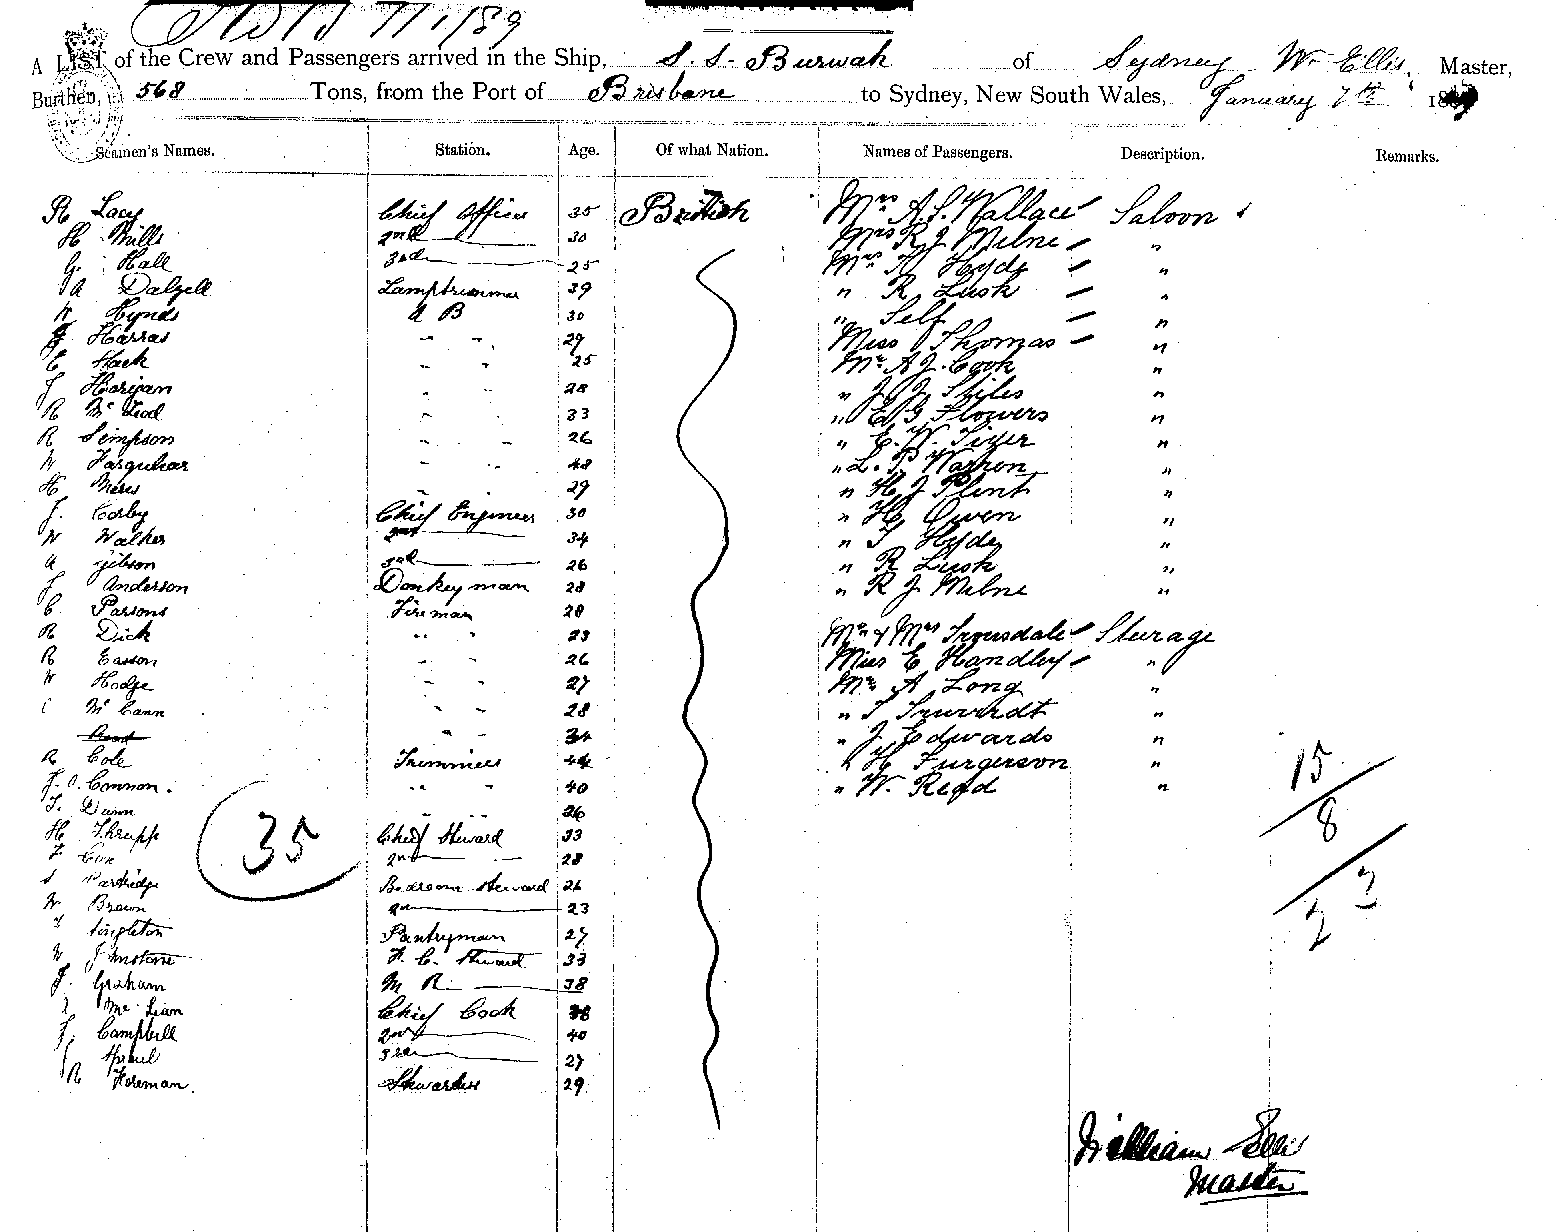 A LIST of the Crew and Passengers arrived in the Ship, S. S. Burwah of Sydney W. Ellis, Master,
Burthen, 568 Tons, from the Port of Brisbane to Sydney, New South Wales, January 7th 18
Seamen's Names. Station. Age. Of what Nation. Names of Passengers. Description. Remarks.
R Lacy Chief Officer 35 British Mrs A. S. Wallace Saloon
H Mills 2nd 30 Mrs R J Milne "
G. Hall 3rd 25 Mrs Hyde "
A Dalzell Lamptrimmer 39 " R Lusk "
W Hynds A B 30 " Self "
Harras " " 29 Miss Thomas "
E Hack " " 25 Mr A J. Cook "
J Horigan " " 28 " J J Stiles "
R McLeod " " 33 " E G Flowers "
R Simpson " " 26 " E. W. Tizer "
W Farquhar " " 48 " L. P. Warron "
H " 29 " H J Plint "
J. Corby Chief Engineer 30 " H Owen "
W Walker 2nd 34 " T Hyde "
A Gibson 3rd 26 " R Lusk "
J Anderson Donkeyman 28 " R J Milne "
C. Parsons Fireman 28
R Dick " " 23 Mr & Mrs Trousdale Steerage
R Easson " " 26 Miss E Handley "
W Hodge " " 27 Mr A Long "
McCann " " 28 " T "
" " 34 " J Edwards "
R Cole Trimmers 44 " H Furgerson "
J. O. Connon. " " 40 " W. Read "
T. Dunn " " 26
H Thrupp Chief Steward 33
F Cox 2nd 28
S Partridge Bedroom Steward 26
W Brown 2nd 23
Singleton Pantryman 27
W Johnstone F. C. Steward 33
J. Graham M R 38
McLean Chief Cook 38
J. Campbell 2nd 40
Sproul 3rd 27
R Foreman. Stewardess 29
35
15
8
2 3
William Ellis
Master